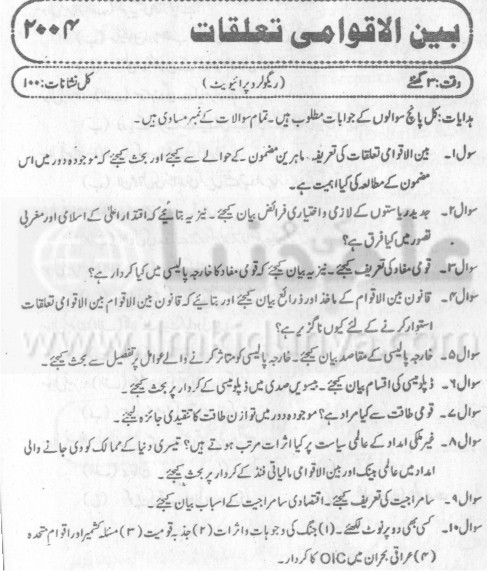 بین الاقوامی تعلقات ۲۰۰۴
وقت: ۳ گھنٹے (ریگولر و پرائیویٹ) کل نشانات: ۱۰۰
ہدایات: کل پانچ سوالوں کے جوابات مطلوب ہیں۔ تمام سوالات کے نمبر مساوی ہیں۔
سوال۱۔ بین الاقوامی تعلقات کی تعریف، ماہرین مضمون کے حوالے سے کیجئے اور بحث کیجئے کہ موجودہ دور میں اس
مضمون کے مطالعہ کی کیا اہمیت ہے۔
سوال۲۔ جدید ریاستوں کے لازمی و اختیاری فرائض بیان کیجئے۔ نیز یہ بتائیے کہ اقتدار اعلیٰ کے اسلامی اور مغربی
تصور میں کیا فرق ہے؟
سوال۳۔ قومی مفاد کی تعریف کیجئے۔ نیز یہ بیان کیجئے کہ قومی مفاد کا خارجہ پالیسی میں کیا کردار ہے؟
سوال۴۔ قانون بین الاقوام کے ماخذ اور ذرائع بیان کیجئے اور بتائیے کہ قانون بین الاقوام بین الاقوامی تعلقات
استوار کرنے کے لئے کیوں ناگزیر ہے؟
سوال۵۔ خارجہ پالیسی کے مقاصد بیان کیجئے۔ خارجہ پالیسی کو متاثر کرنے والے عوامل پر تفصیل سے بحث کیجئے۔
سوال۶۔ ڈپلومیسی کی اقسام بیان کیجئے۔ بیسویں صدی میں ڈپلومیسی کے کردار پر بحث کیجئے۔
سوال۷۔ قومی طاقت سے کیا مراد ہے؟ موجودہ دور میں توازن طاقت کا تنقیدی جائزہ لیجئے۔
سوال۸۔ غیر ملکی امداد کے عالمی سیاست پر کیا اثرات مرتب ہوتے ہیں؟ تیسری دنیا کے ممالک کو دی جانے والی
امداد میں عالمی بینک اور بین الاقوامی مالیاتی فنڈ کے کردار پر بحث کیجئے۔
سوال۹۔ سامراجیت کی تعریف کیجئے۔ اقتصادی سامراجیت کے اسباب بیان کیجئے۔
سوال۱۰۔ کسی بھی دو پر نوٹ لکھئے۔ (۱) جنگ کی وجوہات و اثرات (۲) جذبہ قومیت (۳) مسئلہ کشمیر اور اقوام متحدہ
(۴) عراقی بحران میں OIC کا کردار۔
www.ilmkidunya.com